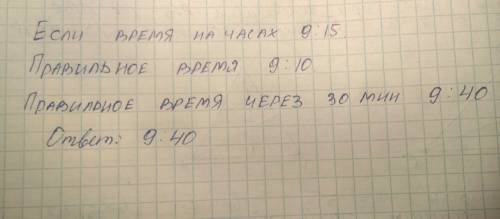 Если время на часах 9:15
Правильное время 9:10
Правильное время через 30 мин 9:40
Ответ: 9.40